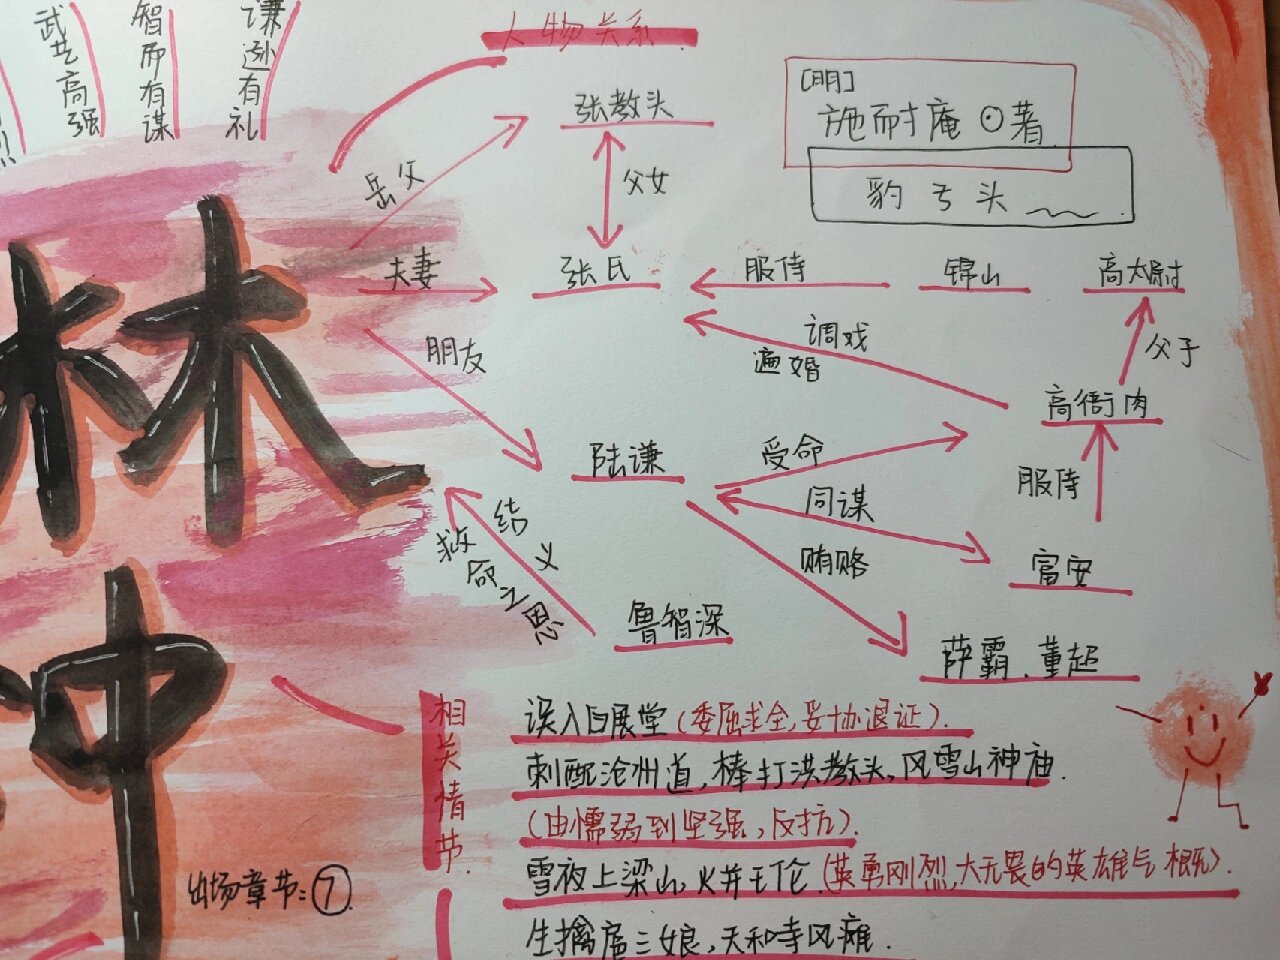 武艺高强
智而有谋
谦逊有礼
人物关系.
[明]
施而寸庵⊙著
豹丂头
张教头
岳父
父女
夫妻
张氏
服侍
锦山
高太尉
调戏
逼婚
父子
朋友
高衙内
陆谦
受命
同谋
服侍
贿赂
富安
救命之恩
结义
鲁智深
薛霸、董超
林
冲
出场章节:⑦
相关情节.
误入白展堂(委屈求全,妥协退证).
刺配沧州道,棒打洪教头,风雪山神庙.
(由懦弱到坚强,反抗).
雪夜上梁山,火并王伦.(英勇刚烈,大无畏的英雄气概).
生擒扈三娘,天和寺风瘫.